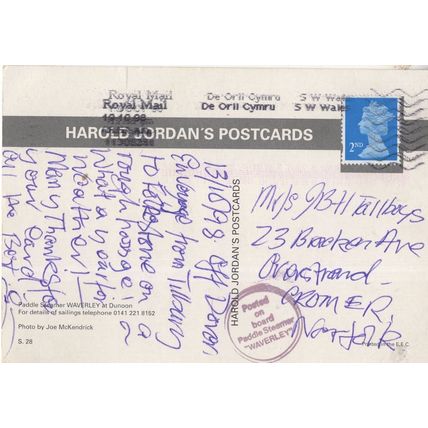 Royal Mail De Orll Cymru S W Wales
Royal Mail De Orll Cymru S W Wales
19.10.98
HAROLD JORDAN'S POSTCARDS
2ND
HAROLD JORDAN'S POSTCARDS
13/10/98. Off Dover.
On voyage from Tilbury
to Folkestone on a
rough voyage
What a year for
weather!
Many Thanks for
your card
All the Best
Mr/s JBH Tallboys
23 Bracken Ave
Overstrand
CROMER,
Norfolk
Posted
on
board
Paddle Steamer
"WAVERLEY"
Paddle Steamer WAVERLEY at Dunoon
For details of sailings telephone 0141 221 8152
Photo by Joe McKendrick
S. 28
Printed in the E.E.C.